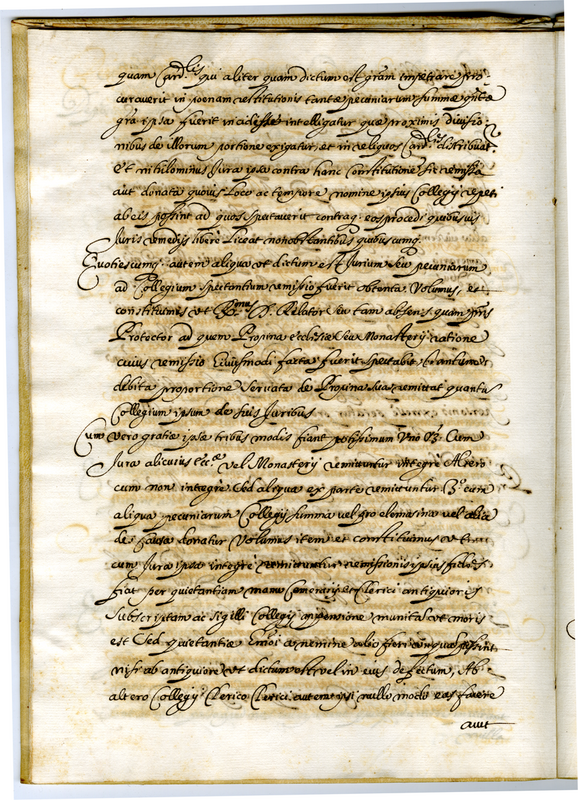 quam Card.lis qui aliter quam dictum est gram impetrare pro-
curaverit in poenam restitutionis tantae pecuniarum summae qta
gra ipsa fuerit incidisse intelligatur quae proximis divisio-
nibus de illorum portione exigatur, et in reliquos Card.les distribuat.
et nihilominus Iura ipsa contra hanc Constitutione sic remissa
aut donata quovis Loco ac tempore nomine ipsius Collegij repeti
ab eis possint ad quos spectaverit contraq. eos procedi quibusvis
Iuris remedijs libere Liceat non obstantibus quibuscumq.
Quotiescumq. autem aliqua ut dictum est Iurium seu pecuniarum
ad Collegium spectantium remissio fuerit obtenta Volumus, et
constituimus ut R.mus D. Relator seu tam absens quam pns
Protector ad quem Propina ecclesiae seu Monasterij ratione
cuius remissio Eiusmodi facta fuerit spectabit tantum
debita proportione servata de Propina sua remittat quantu
Collegium ipsum de suis Iuribus
Cum vero gratiae ipsae tribus modis fiant potissimum Vno Cum
Iura alicuius Ecc.ae vel Monasterij remittuntur integre Altero
cum non integre sed aliqua ex parte remittuntur 3.o cum
aliqua pecuniarum Collegij summa vel pro elemosina vel alia
de causa donatur Volumus item et constituimus ut tunc
cum Iura ipsa integre remittuntur remissionis ipsius fides
fiat per quietantiam manu Camerarij et Clerici antiquioris
subscriptam ac sigilli Collegij impensione munitam ut moris
est Sed quietantiae a nemine alio fieri possint
nisi ab antiquiore ut dictum est vel in eius defectum, Ab
altero Collegij Clerico Clerici autem ipsi nullo modo eas facere
aut